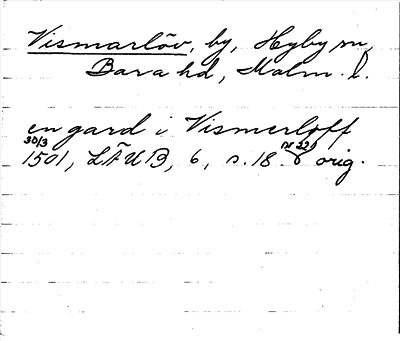 Vismarlöv, by, Hyby sn,
Bara hd, Malm. l.
en gard i Vismerloff
30/3 1501, LÄUB, 6, s. 18. orig.
nr 229